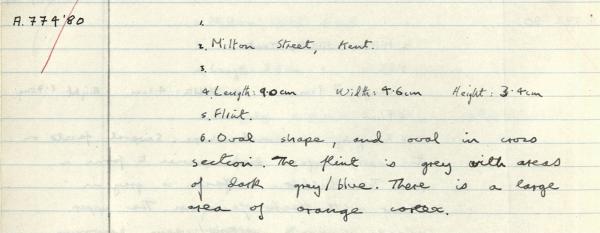 A.774'80
1.
2. Milton Street, Kent.
3.
4. Length: 9.0cm Width: 4.6cm Height: 3.4cm
5. Flint.
6. Oval shape, and oval in cross
section. The flint is grey with areas
of dark grey/blue. There is a large
area of orange cortex.